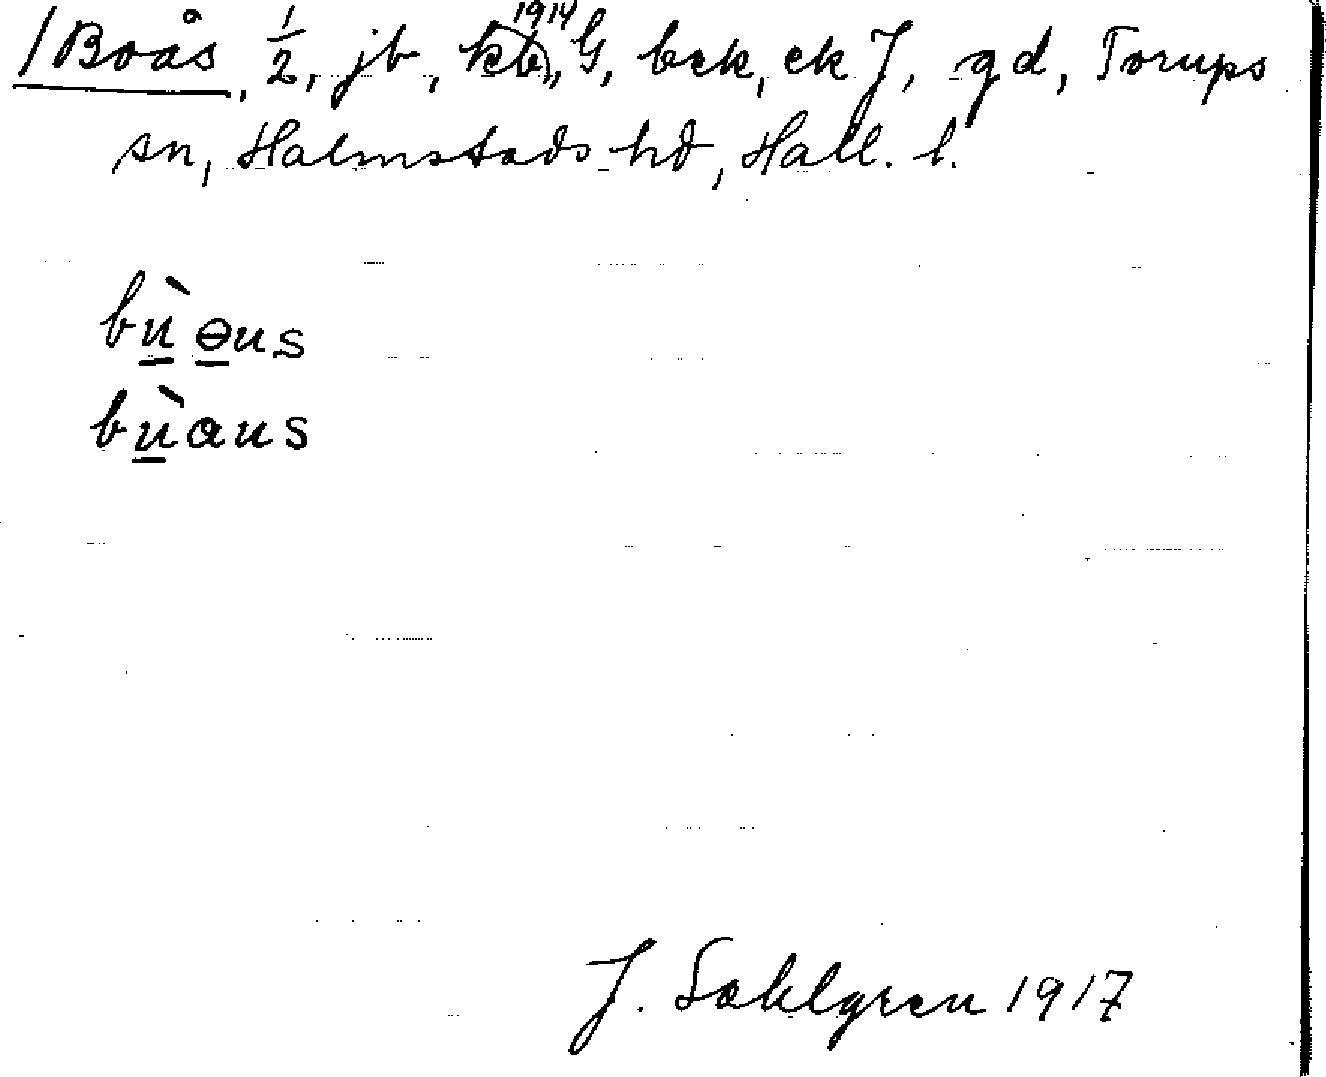 /Boås, 1/2, jb, kb 1914, G, bek, ek J, gd, Torups
sn, Halmstads hd, Hall. l.
bùɵus
bùaus
J. Sahlgren 1917